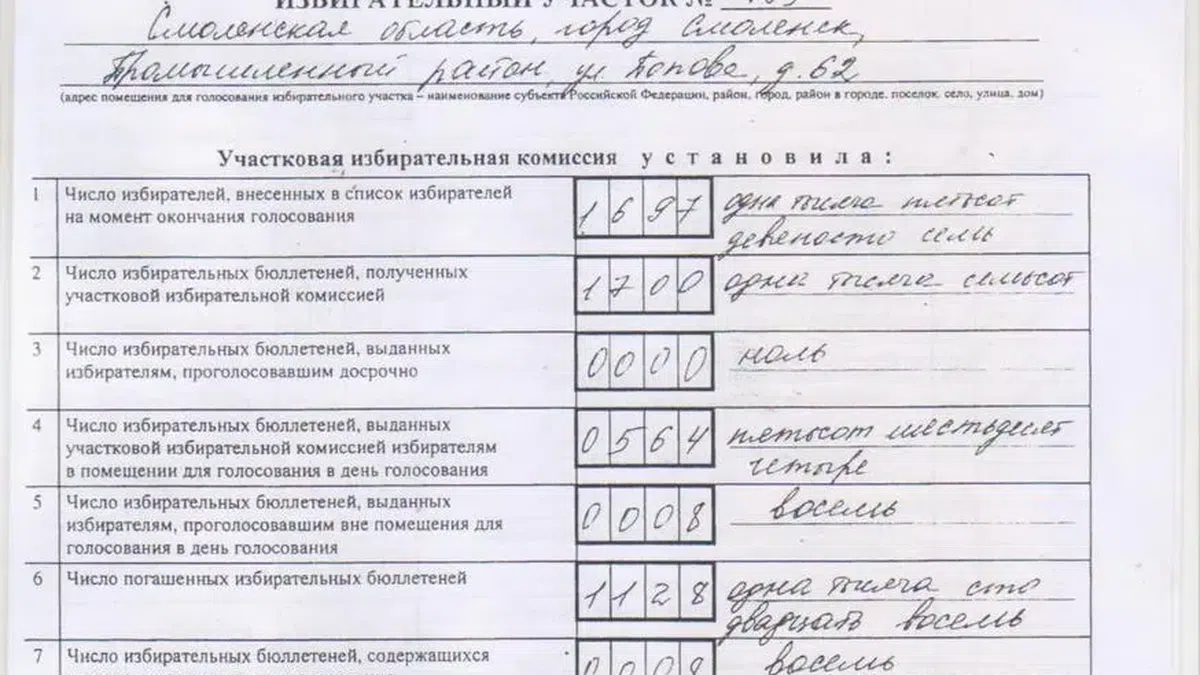 ИЗБИРАТЕЛЬНЫЙ УЧАСТОК №
Смоленская область, город Смоленск,
Промышленный район, ул. Попова, д. 62
(адрес помещения для голосования избирательного участка – наименование субъекта Российской Федерации, район, город, район в городе, поселок, село, улица, дом)
Участковая избирательная комиссия установила:
1 Число избирателей, внесенных в список избирателей 1697 одна тысяча пятьсот
на момент окончания голосования девеносто семь
2 Число избирательных бюллетеней, полученных 1700 одна тысяча семьсот
участковой избирательной комиссией
3 Число избирательных бюллетеней, выданных 0000 ноль
избирателям, проголосовавшим досрочно
4 Число избирательных бюллетеней, выданных 0564 пятьсот шестьдесят
участковой избирательной комиссией избирателям четыре
в помещении для голосования в день голосования
5 Число избирательных бюллетеней, выданных 0008 восемь
избирателям, проголосовавшим вне помещения для
голосования в день голосования
6 Число погашенных избирательных бюллетеней 1128 одна тысяча сто
двадцать восемь
7 Число избирательных бюллетеней, содержащихся 0008 восемь